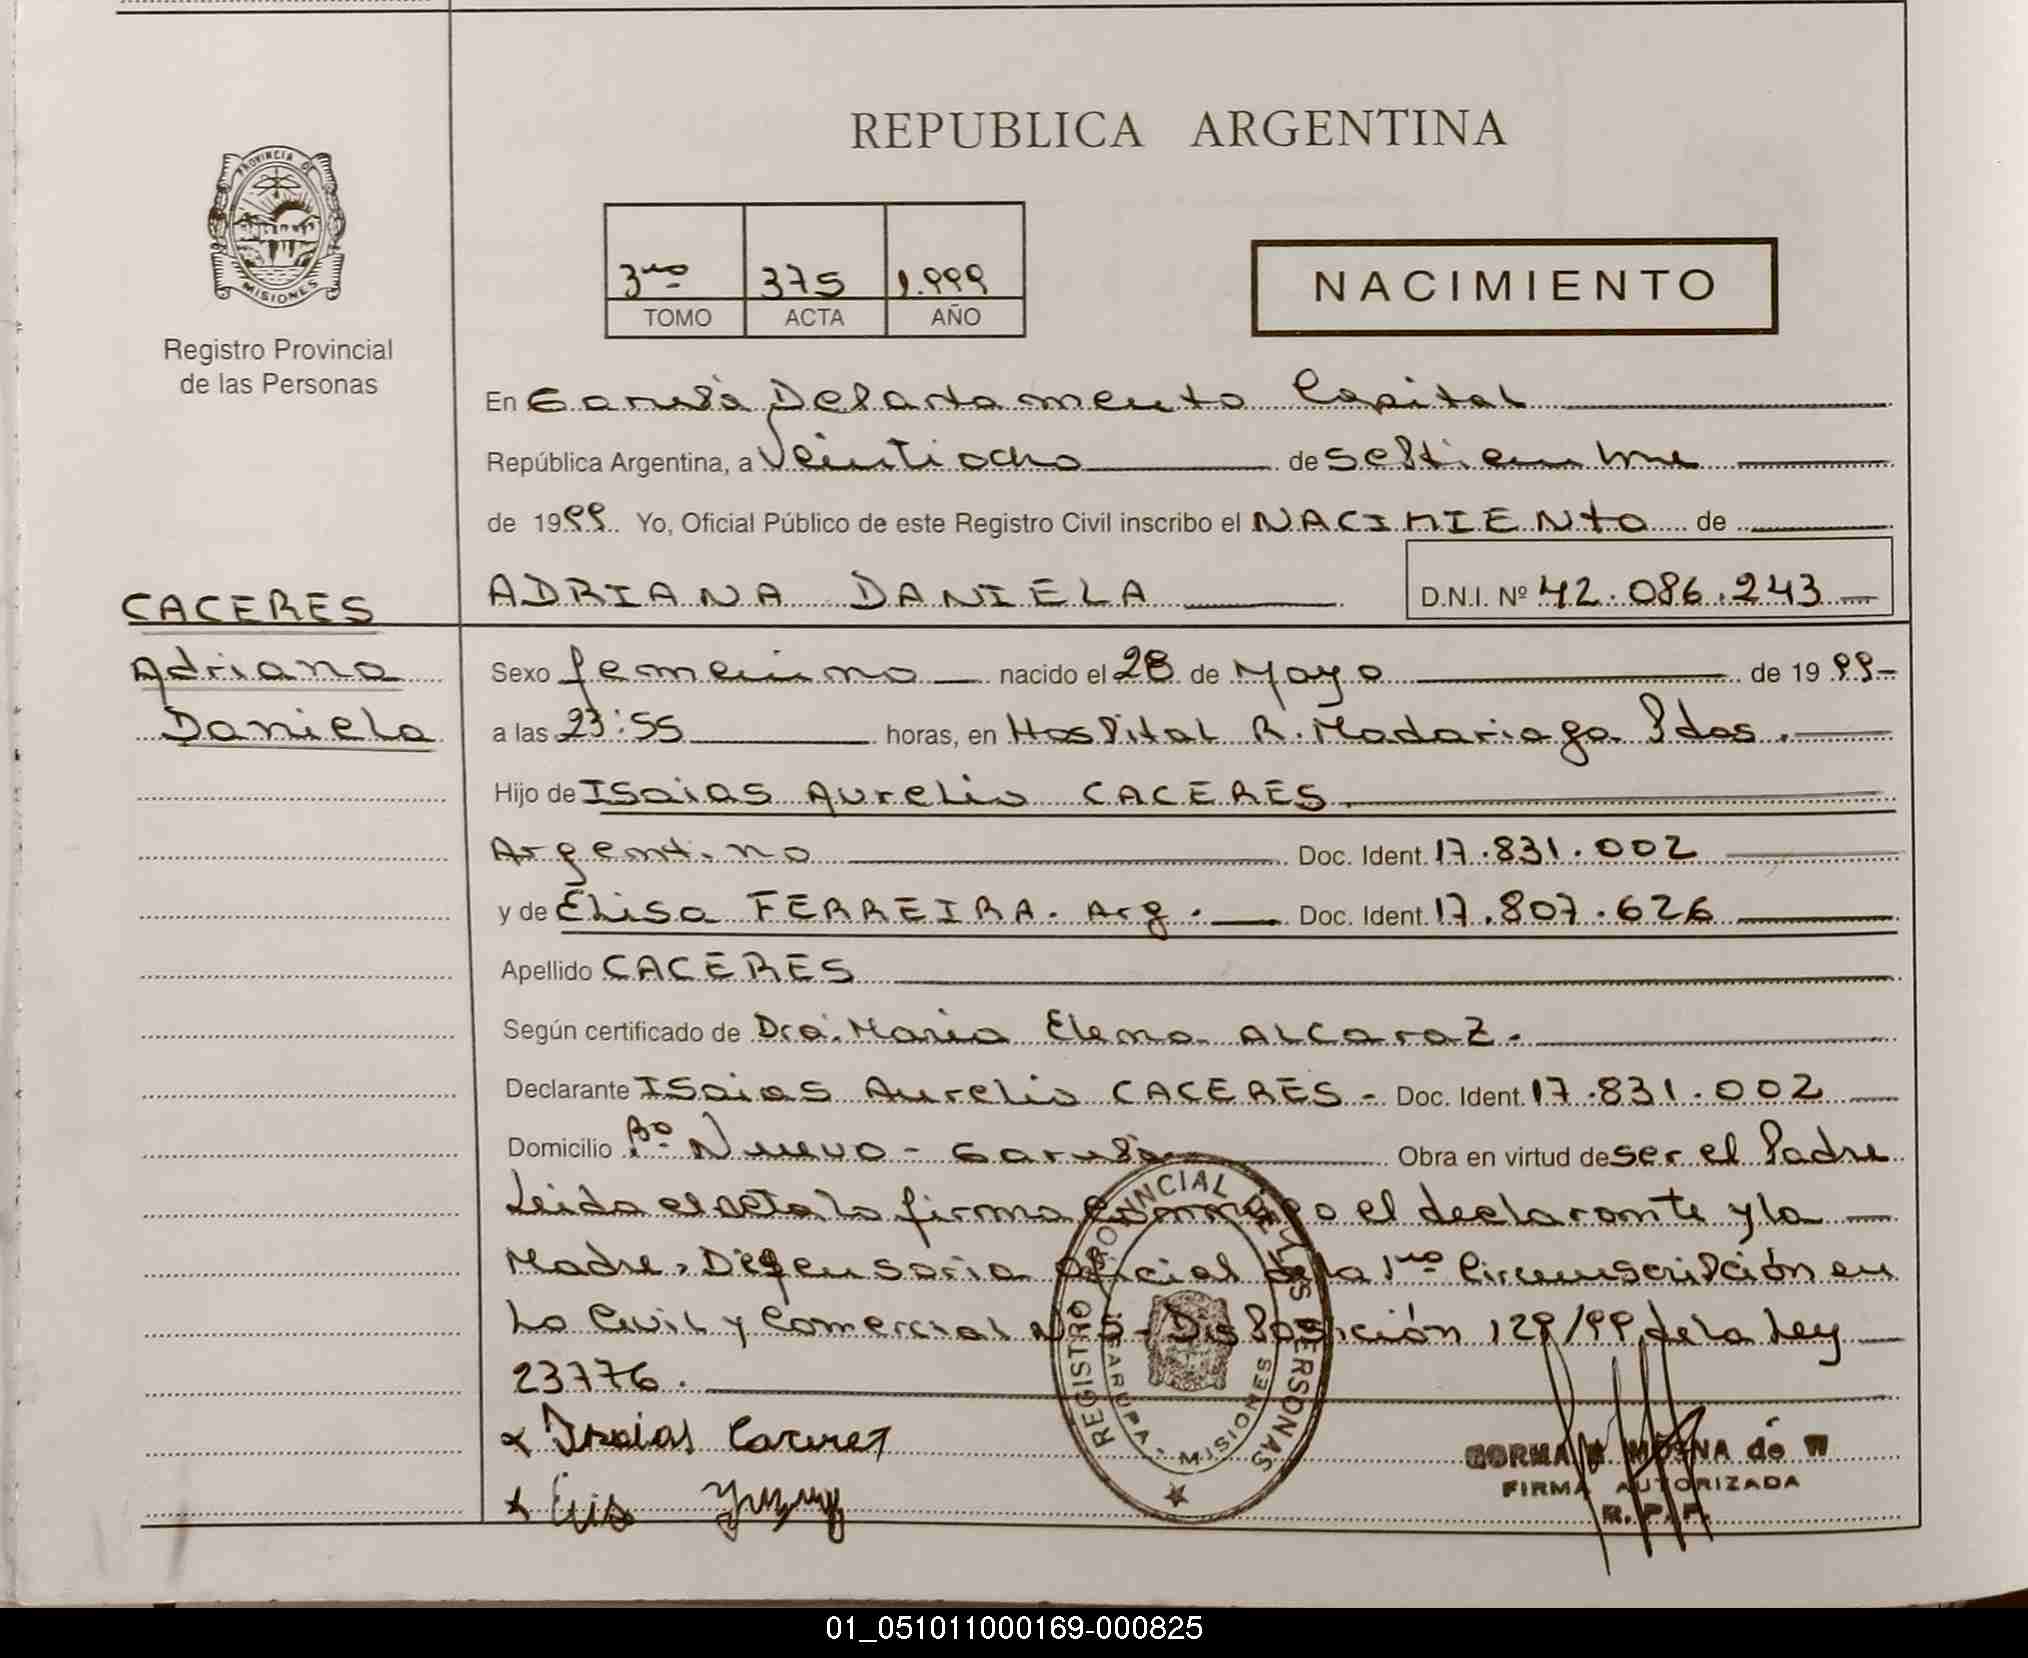 REPUBLICA ARGENTINA
PROVINCIA DE MISIONES
Registro Provincial
de las Personas
3ro 375 1.999
TOMO ACTA AÑO
NACIMIENTO
En Garupá Departamento Capital
República Argentina, a Veintiocho de Septiembre
de 1999 Yo, Oficial Público de este Registro Civil inscribo el NACIMIENTO de
ADRIANA DANIELA D.N.I. Nº 42.086.243
CACERES
Adriana
Daniela
Sexo femenino nacido el 28 de Mayo de 1999
a las 23:55 horas, en Hospital R. Madariaga Pdas.
Hijo de Isaias Aurelio CACERES
Argentino Doc. Ident. 17.831.002
y de Elisa FERREIRA. Arg. Doc. Ident. 17.807.626
Apellido CACERES
Según certificado de Dra. Maria Elena ALCaraz.
Declarante Isaias Aurelio CACERES - Doc. Ident. 17.831.002
Domicilio Bº Nuevo - Garupá Obra en virtud de ser el Padre
Leida el acta la firma conmigo el declarante y la
Madre, Defensoria Oficial de la 1ra Circunscripción en
Lo Civil y Comercial Nº 5 - Disposición 129/99 de la Ley
23776.
Isaias Caceres
REGISTRO PROVINCIAL DE LAS PERSONAS
GARUPA - MISIONES
MOSNA de W
FIRMA AUTORIZADA
R. P. P.
01_051011000169-000825